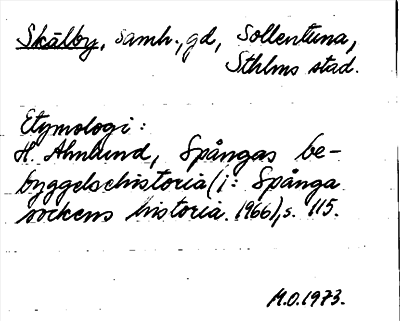 Skälby, samh., gd, Sollentuna,
Sthlms stad.
Etymologi:
H. Ahnlund, Spångas be-
byggelsehistoria (i: Spånga
sockens historia. 1966), s. 115.
M.O. 1973.